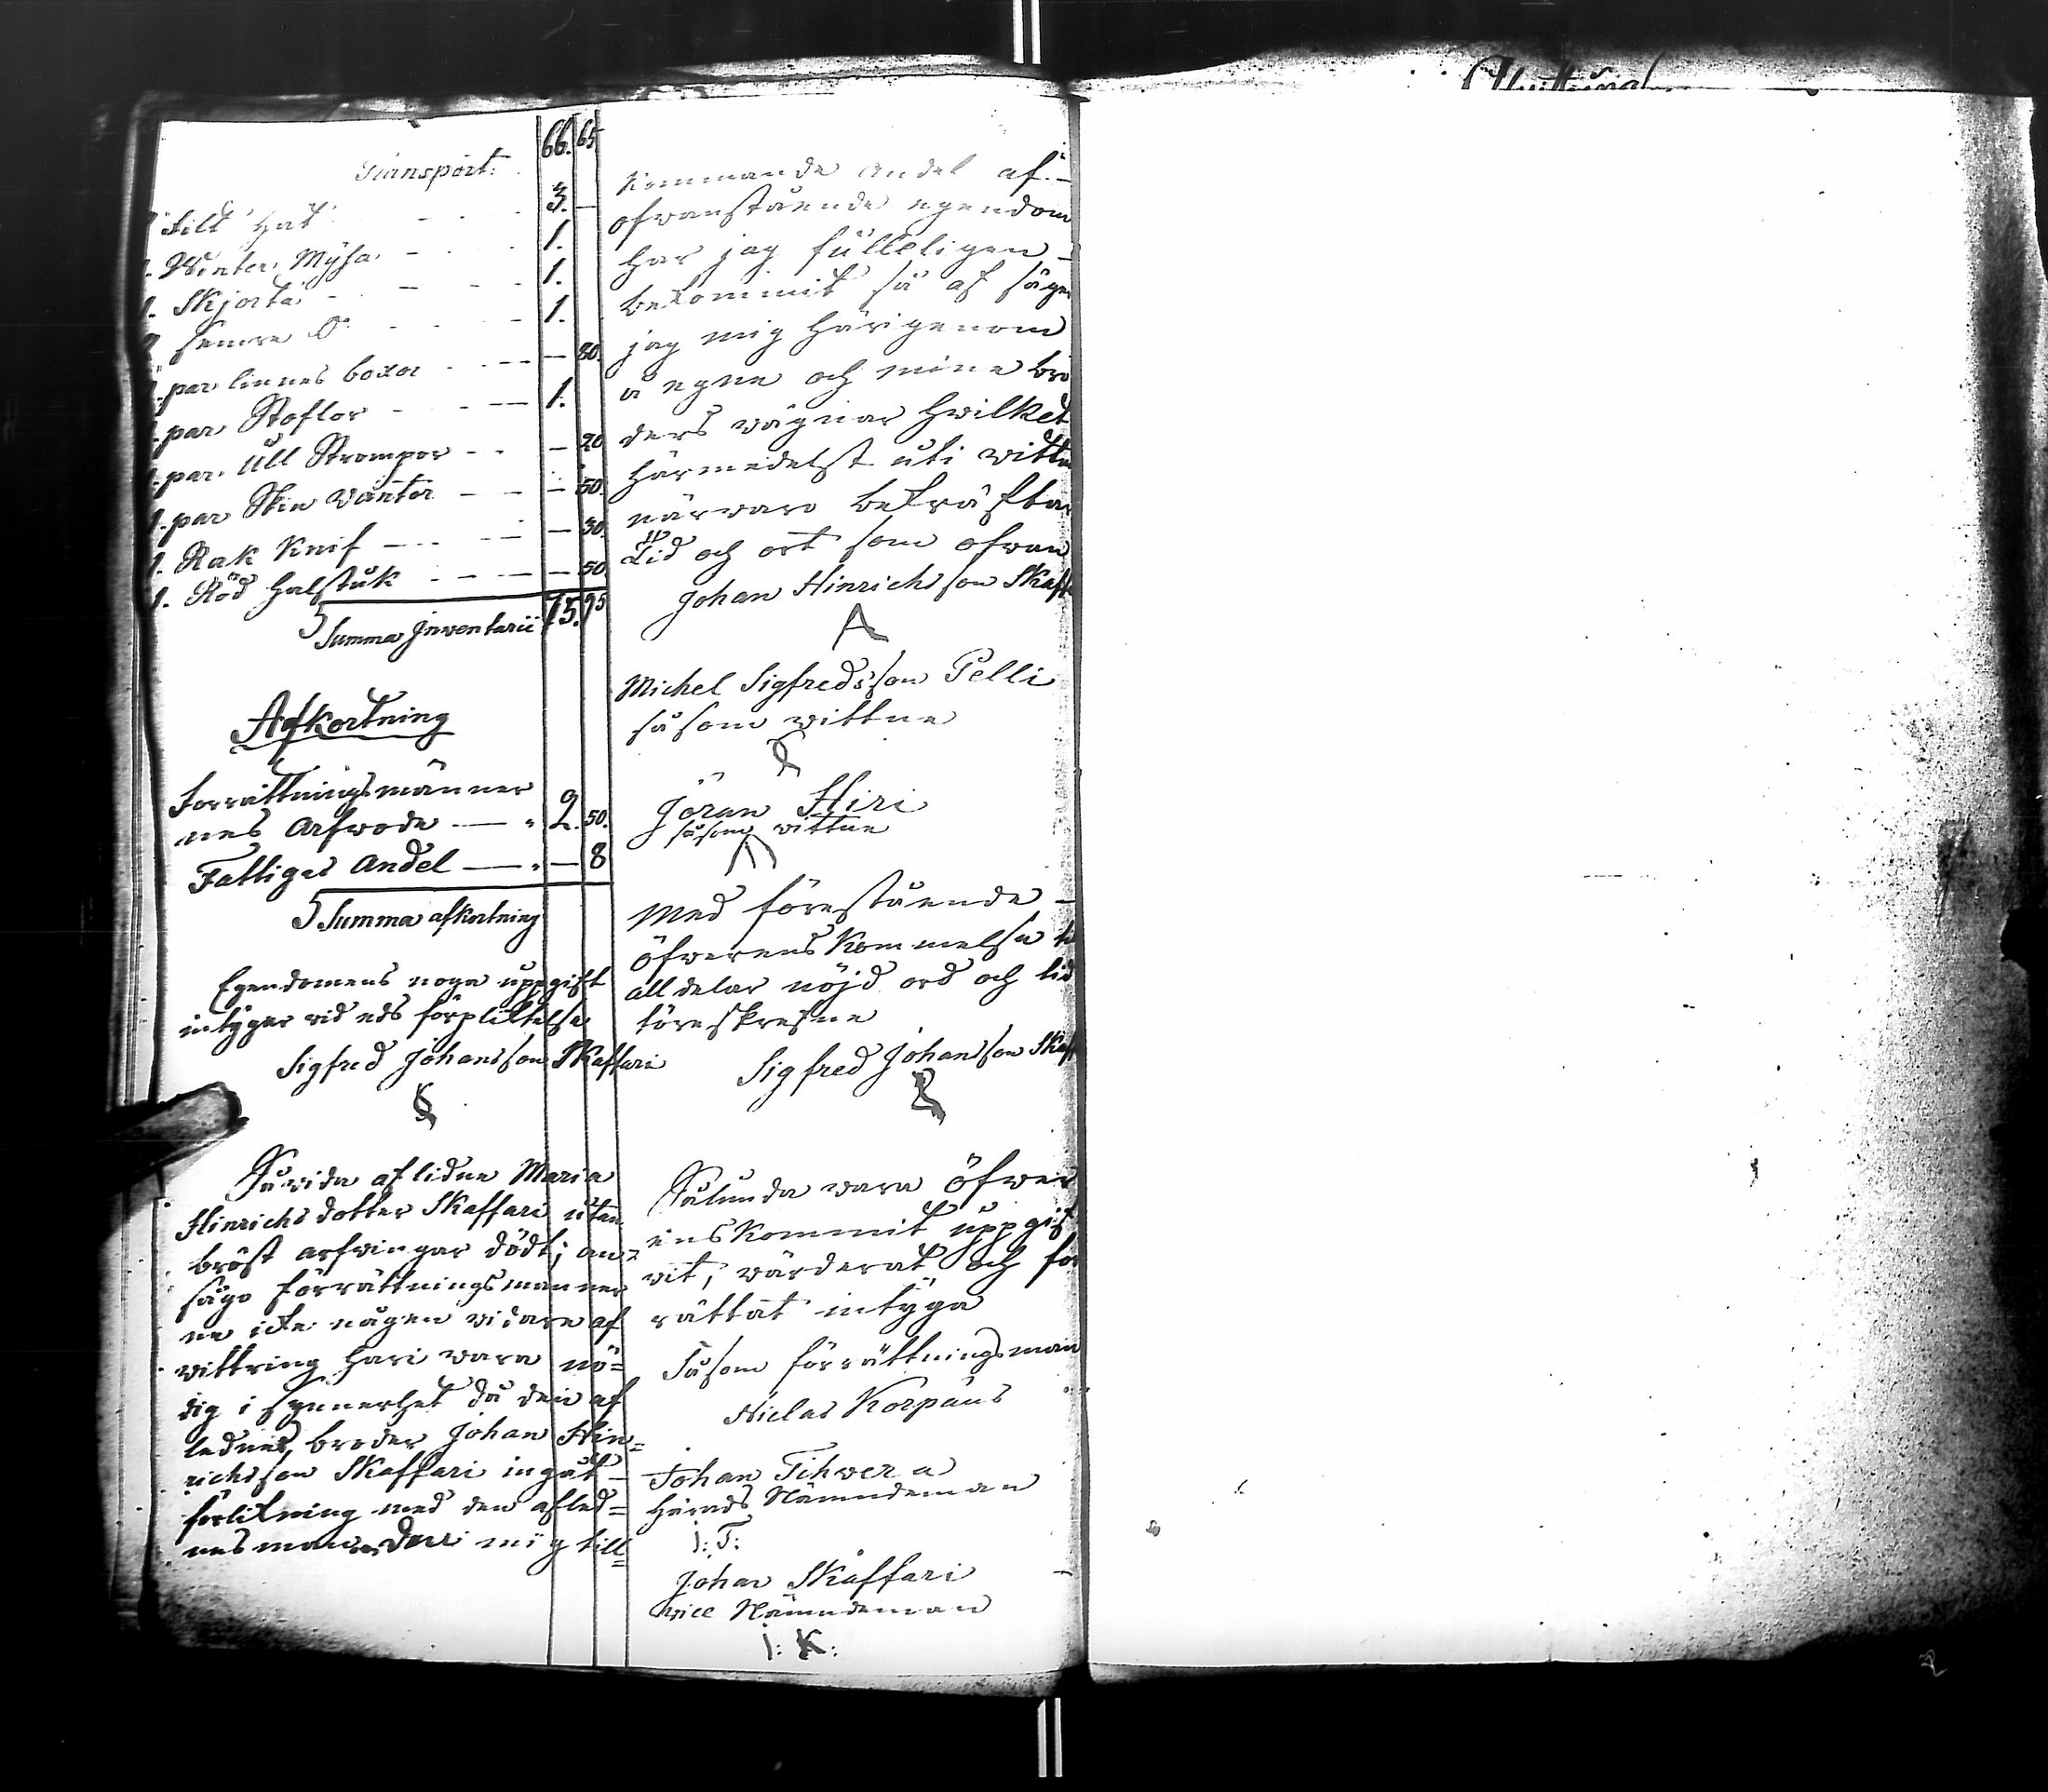 Transport: 66. 65
Filt hat 3. —
1. Winter Mysa 1.
1. Skjorta 1.
semre Dº 1.
1. par linnes boxor — 80.
1. par Stoflor 1.
1. par. Ull Strompor — 20
1. par Skin Vanter — 50.
1. Rak Knif — 30.
1. Röd halstuk — 50
Summa Inventarii 75. 95
Afkortning
Forrättningsmänner
nes Arfwode — 2. 50.
Fattiges Andel — — 8
Summa afkortning
Egendomens noga uppgift
intyger vid eds förpliktelse
Sigfred Johansson Skaffari
Såvida aflidne Maria
Hinrichsdotter Skaffari utan
bröst arfvingar dödt; an=
sågo förrättningsmänner
ne icke någon vidare af
vittring häri vara nö=
dig i synnerhet då den af
lednes broder Johan Hin=
richsson Skaffari ingåt
förlikning med den afled=
nes man den mig till=
kommande andel af
ofvanstående egendom
har jag fulleligen
bekommit så af säger
jag mig härigenom
å egne och mine brö
ders vägnar hvilket
härmedelst uti vittn
närvaro bekräftas
Tid och ort som ofvan
Johan Hinrichsson Skaff
Michel Sigfredsson Pelli
såsom vittne
Jöran Hiri
såsom vittne
Med förestående
öfverenskommelse ti
alldelas nöjd ord och tid
föreskrefne
Sigfred Johansson Skaff
Sålunda vara öfver
enskommit uppgif
vit, värderat och för
rättat intyga
Såsom förrättningsman
Niclas Korpäus
Johan Tihvera
Härads Nämndeman
I: T:
Johan Skaffari
vice Nämndeman
I: K: